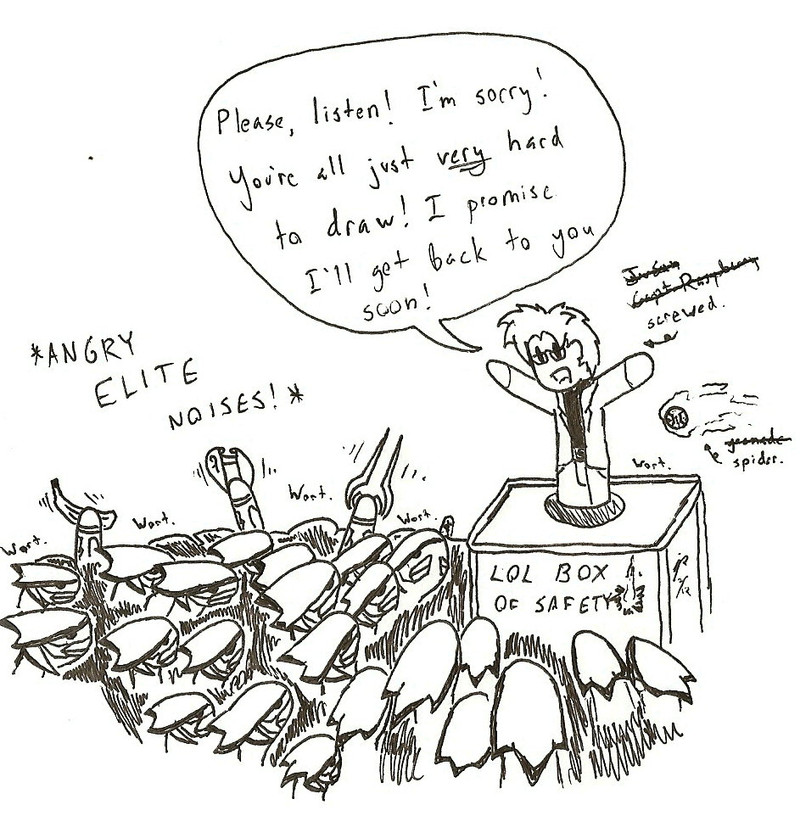 Please, listen! I'm sorry!
You're all just very hard
to draw! I promise
I'll get back to you
soon!
Justin
Capt. Raspberry
screwed.
*ANGRY
ELITE
NOISES!*
grenade
spider.
Wort.
Wort.
Wort.
Wort.
Wort.
LOL BOX
OF SAFETY